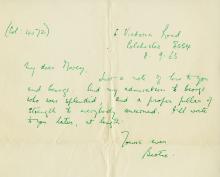 (Col. 4572)
6 Victoria Road
Colchester Essex
8.9.63
My dear
Just a note of love to you
and George and my admiration to George
who was splendid, and a proper pillar of
strength to everybody concerned. I'll write
to you later, at length.
Yours ever